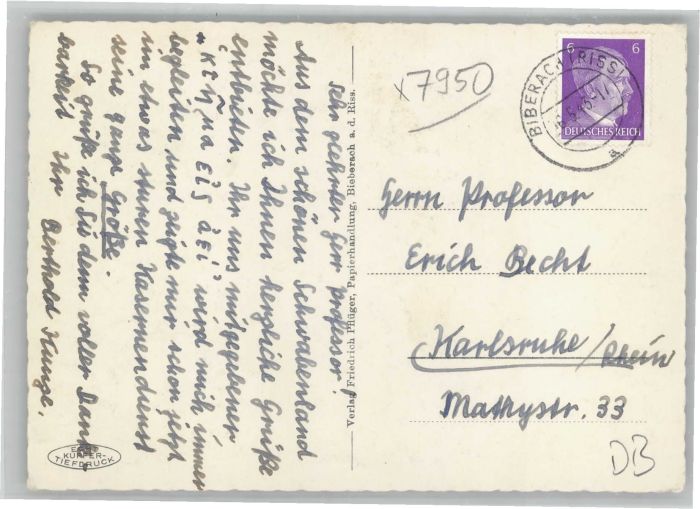 Sehr geehrter Herr Professor!
Aus dem schönen Schwabenland
möchte ich Ihnen herzliche Grüße
entbieten. Ihr uns mitgegebener
"κτῆμα εἰς ἀεί" wird mich immer
begleiten und zeigte mir schon jetzt
im etwas sturen Kasernendienst
seine ganze Größe.
So grüße ich Sie denn voller Dank-
barkeit Ihr Berthold Kunze.
Verlag Friedrich Pflüger, Papierhandlung, Bieberach a. d. Riss.
x7950
6 6
DEUTSCHES REICH
BIBERACH (RISS)
a
Herrn Professor
Erich Becht
Karlsruhe/Rhein
Mathystr. 33
DB
ECHT
KUPFER-
TIEFDRUCK